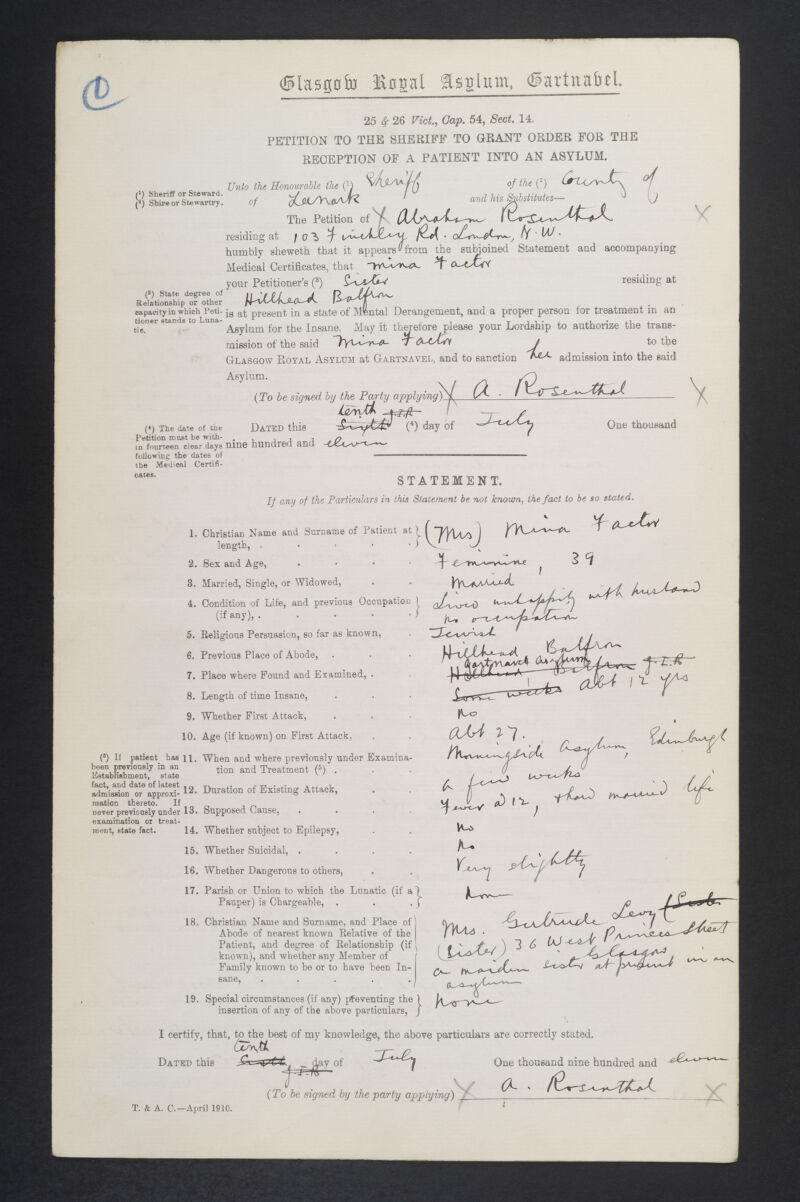 1
Glasgow Royal Asylum, Gartnavel.
25 & 26 Vict., Cap. 54, Sect. 14.
PETITION TO THE SHERIFF TO GRANT ORDER FOR THE
RECEPTION OF A PATIENT INTO AN ASYLUM.
(1) Sheriff or Steward.
(2) Shire or Stewartry.
Unto the Honourable the (1) Sheriff of the (2) County of
of Lanark and his Substitutes—
The Petition of X Abraham Rosenthal X
residing at 103 Finchley Rd. London, N.W.
humbly sheweth that it appears from the subjoined Statement and accompanying
Medical Certificates, that Mina Factor
your Petitioner's (3) Sister residing at
(3) State degree of
Relationship or other
capacity in which Peti-
tioner stands to Luna-
tic.
Hillhead Balfron
is at present in a state of Mental Derangement, and a proper person for treatment in an
Asylum for the Insane. May it therefore please your Lordship to authorize the trans-
mission of the said Mina Factor to the
GLASGOW ROYAL ASYLUM at GARTNAVEL, and to sanction her admission into the said
Asylum.
(To be signed by the Party applying) X A. Rosenthal X
tenth J.I.R
(4) The date of the
Petition must be with-
in fourteen clear days
following the dates of
the Medical Certifi-
cates.
DATED this Sixth (4) day of July One thousand
nine hundred and eleven
STATEMENT.
If any of the Particulars in this Statement be not known, the fact to be so stated.
1. Christian Name and Surname of Patient at
length, . (Mrs) Mina Factor
2. Sex and Age, Feminine, 39
3. Married, Single, or Widowed, Married
4. Condition of Life, and previous Occupation
(if any), . Lived unhappily with husband
no occupation
5. Religious Persuasion, so far as known, Jewish
6. Previous Place of Abode, Hillhead Balfron
Gartnavel Asylum
7. Place where Found and Examined, Hillhead Balfron J.I.R
8. Length of time Insane, Some weeks Abt 12 yrs
9. Whether First Attack, no
10. Age (if known) on First Attack, Abt 27.
(5) If patient has
been previously in an
Establishment, state
fact, and date of latest
admission or approxi-
mation thereto. If
never previously under
examination or treat-
ment, state fact.
11. When and where previously under Examina-
tion and Treatment (5) . Morningside Asylum, Edinburgh
12. Duration of Existing Attack, a few weeks
13. Supposed Cause, Fever at 12, & hard married life
14. Whether subject to Epilepsy, no
15. Whether Suicidal, no
16. Whether Dangerous to others, Very slightly
17. Parish or Union to which the Lunatic (if a
Pauper) is Chargeable, none
18. Christian Name and Surname, and Place of
Abode of nearest known Relative of the
Patient, and degree of Relationship (if
known), and whether any Member of
Family known to be or to have been In-
sane,
Mrs. Gertrude Levy (Sister
(Sister) 36 West Princes Street
Glasgow
a maiden sister at present in an
asylum
19. Special circumstances (if any) preventing the
insertion of any of the above particulars, none
I certify, that, to the best of my knowledge, the above particulars are correctly stated.
tenth
DATED this Sixth day of July One thousand nine hundred and eleven
J.I.R
(To be signed by the party applying) X A. Rosenthal X
T. & A. C.—April 1910.